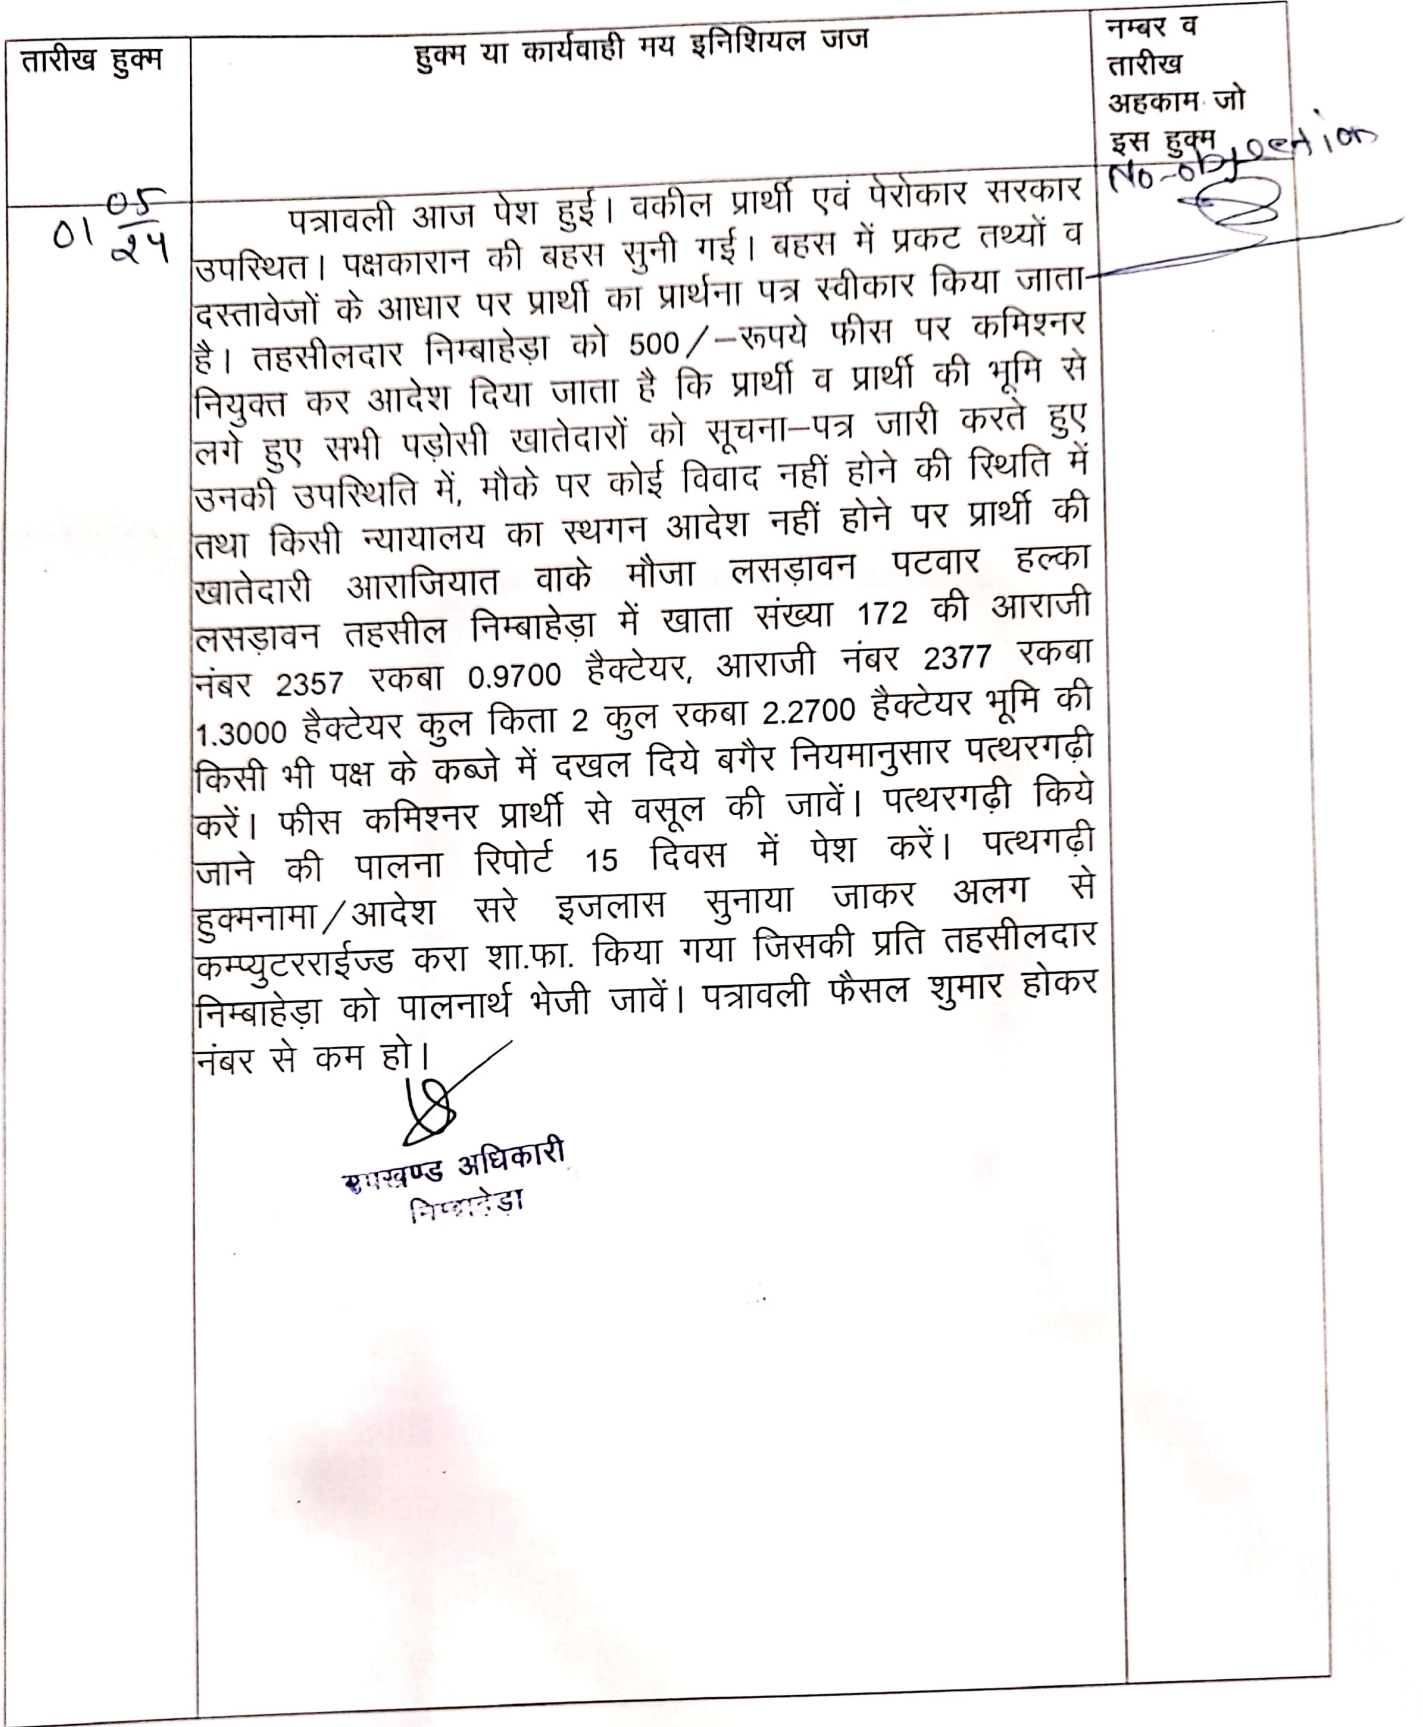 तारीख हुक्म
हुक्म या कार्यवाही मय इनिशियल जज
नम्बर व
तारीख
अहकाम जो
इस हुक्म
No-objection
01 05/24
पत्रावली आज पेश हुई। वकील प्रार्थी एवं पेरोकार सरकार
उपस्थित। पक्षकारान की बहस सुनी गई। बहस में प्रकट तथ्यों व
दस्तावेजों के आधार पर प्रार्थी का प्रार्थना पत्र स्वीकार किया जाता
है। तहसीलदार निम्बाहेड़ा को 500/–रूपये फीस पर कमिश्नर
नियुक्त कर आदेश दिया जाता है कि प्रार्थी व प्रार्थी की भूमि से
लगे हुए सभी पड़ोसी खातेदारों को सूचना–पत्र जारी करते हुए
उनकी उपस्थिति में, मौके पर कोई विवाद नहीं होने की स्थिति में
तथा किसी न्यायालय का स्थगन आदेश नहीं होने पर प्रार्थी की
खातेदारी आराजियात वाके मौजा लसड़ावन पटवार हल्का
लसड़ावन तहसील निम्बाहेड़ा में खाता संख्या 172 की आराजी
नंबर 2357 रकबा 0.9700 हैक्टेयर, आराजी नंबर 2377 रकबा
1.3000 हैक्टेयर कुल किता 2 कुल रकबा 2.2700 हैक्टेयर भूमि की
किसी भी पक्ष के कब्जे में दखल दिये बगैर नियमानुसार पत्थरगढ़ी
करें। फीस कमिश्नर प्रार्थी से वसूल की जावें। पत्थरगढ़ी किये
जाने की पालना रिपोर्ट 15 दिवस में पेश करें। पत्थगढ़ी
हुक्मनामा/आदेश सरे इजलास सुनाया जाकर अलग से
कम्प्युटरराईज्ड करा शा.फा. किया गया जिसकी प्रति तहसीलदार
निम्बाहेड़ा को पालनार्थ भेजी जावें। पत्रावली फैसल शुमार होकर
नंबर से कम हो।
उपखण्ड अधिकारी
निम्बाहेड़ा